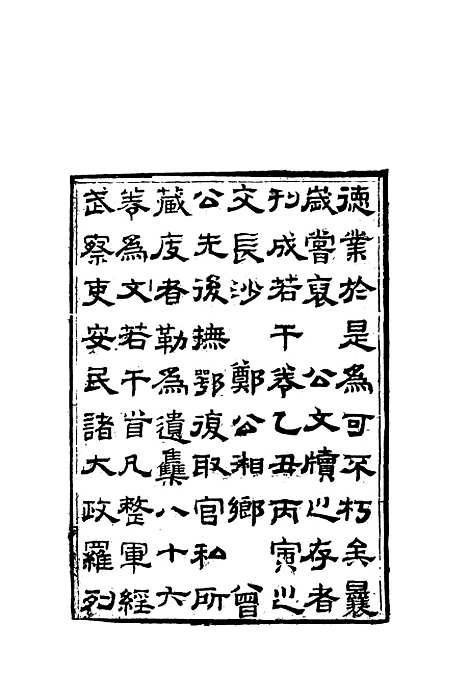 德業於是為可不朽矣曩
歲嘗裒 公文牘之存者
刊成若干卷乙丑丙寅之
交長沙 鄭公湘鄉 曾
公先後撫鄂復取官私所
藏庋者勒為遺雧八十六
卷為文若干首凡整軍經
武察吏安民諸大政羅列